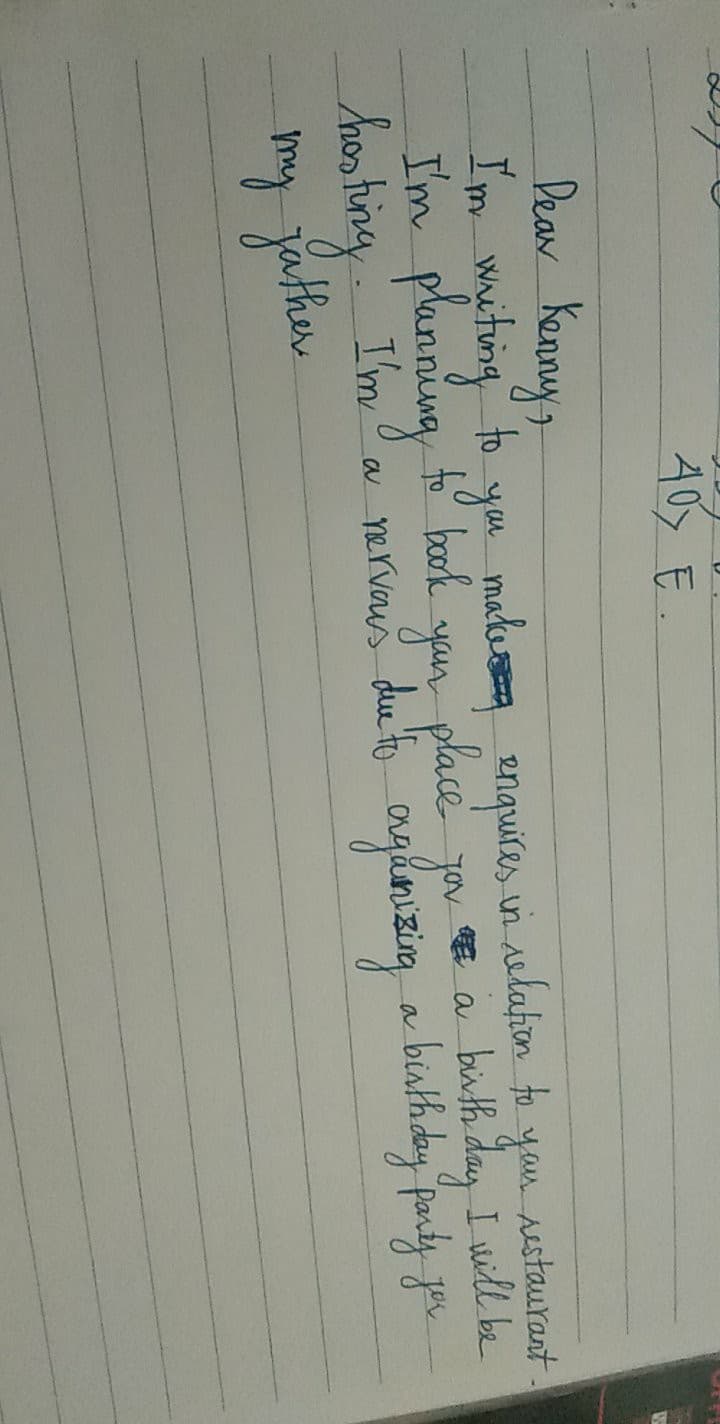 40) E.
Dear Kenny,
I'm writing to you make enquires in relation to your restaurant.
I'm planning to book your place for a birthday I will be
hosting. I'm a nervous due to organizing a birthday party for
my father